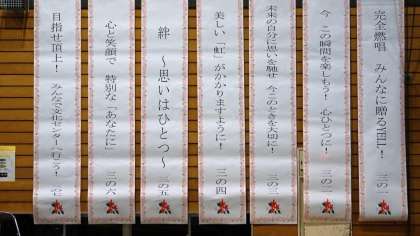 完全燃唱 みんなに贈るYELL! 三の一
今、この瞬間を楽しもう! 心ひとつに! 三の二
未来の自分に思いを馳せ 今このときを大切に! 三の三
美しい「虹」がかかりますように! 三の四
絆 ～思いはひとつ～ 三の五
心と笑顔で 特別な「あなたに」 三の六
目指せ頂上! みんなで文化センターへ行こう!